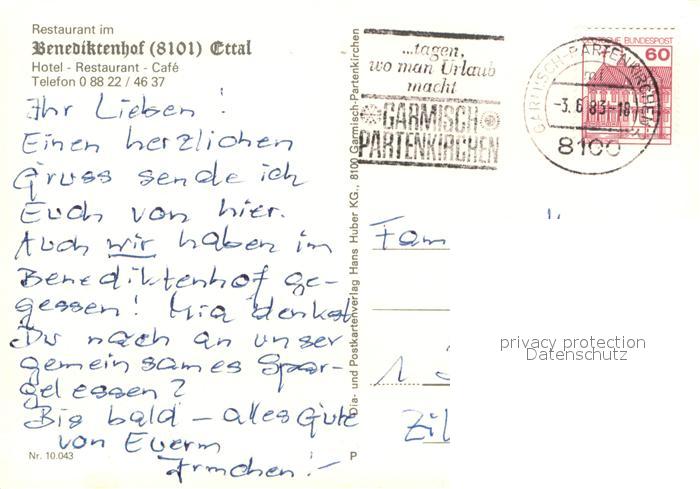 Restaurant im
Benediktenhof (8101) Ettal
Hotel - Restaurant - Café
Telefon 0 88 22 / 46 37
Ihr Lieben !
Einen herzlichen
Gruss sende ich
Euch von hier.
Auch wir haben im
Benediktenhof ge-
gessen! Mia denkst
Du noch an unser
gemeinsames Spar-
gel essen?
Bis bald – alles Gute
von Euerm
Irmchen! -
Nr. 10.043
P
Dia- und Postkartenverlag Hans Huber KG., 8100 Garmisch-Partenkirchen
...tagen,
wo man Urlaub
macht
GARMISCH
PARTENKIRCHEN
GARMISCH-PARTENKIRCHEN
-3.6.83-18
8100
DEUTSCHE BUNDESPOST
60
Fam
1
Zil
privacy protection
Datenschutz